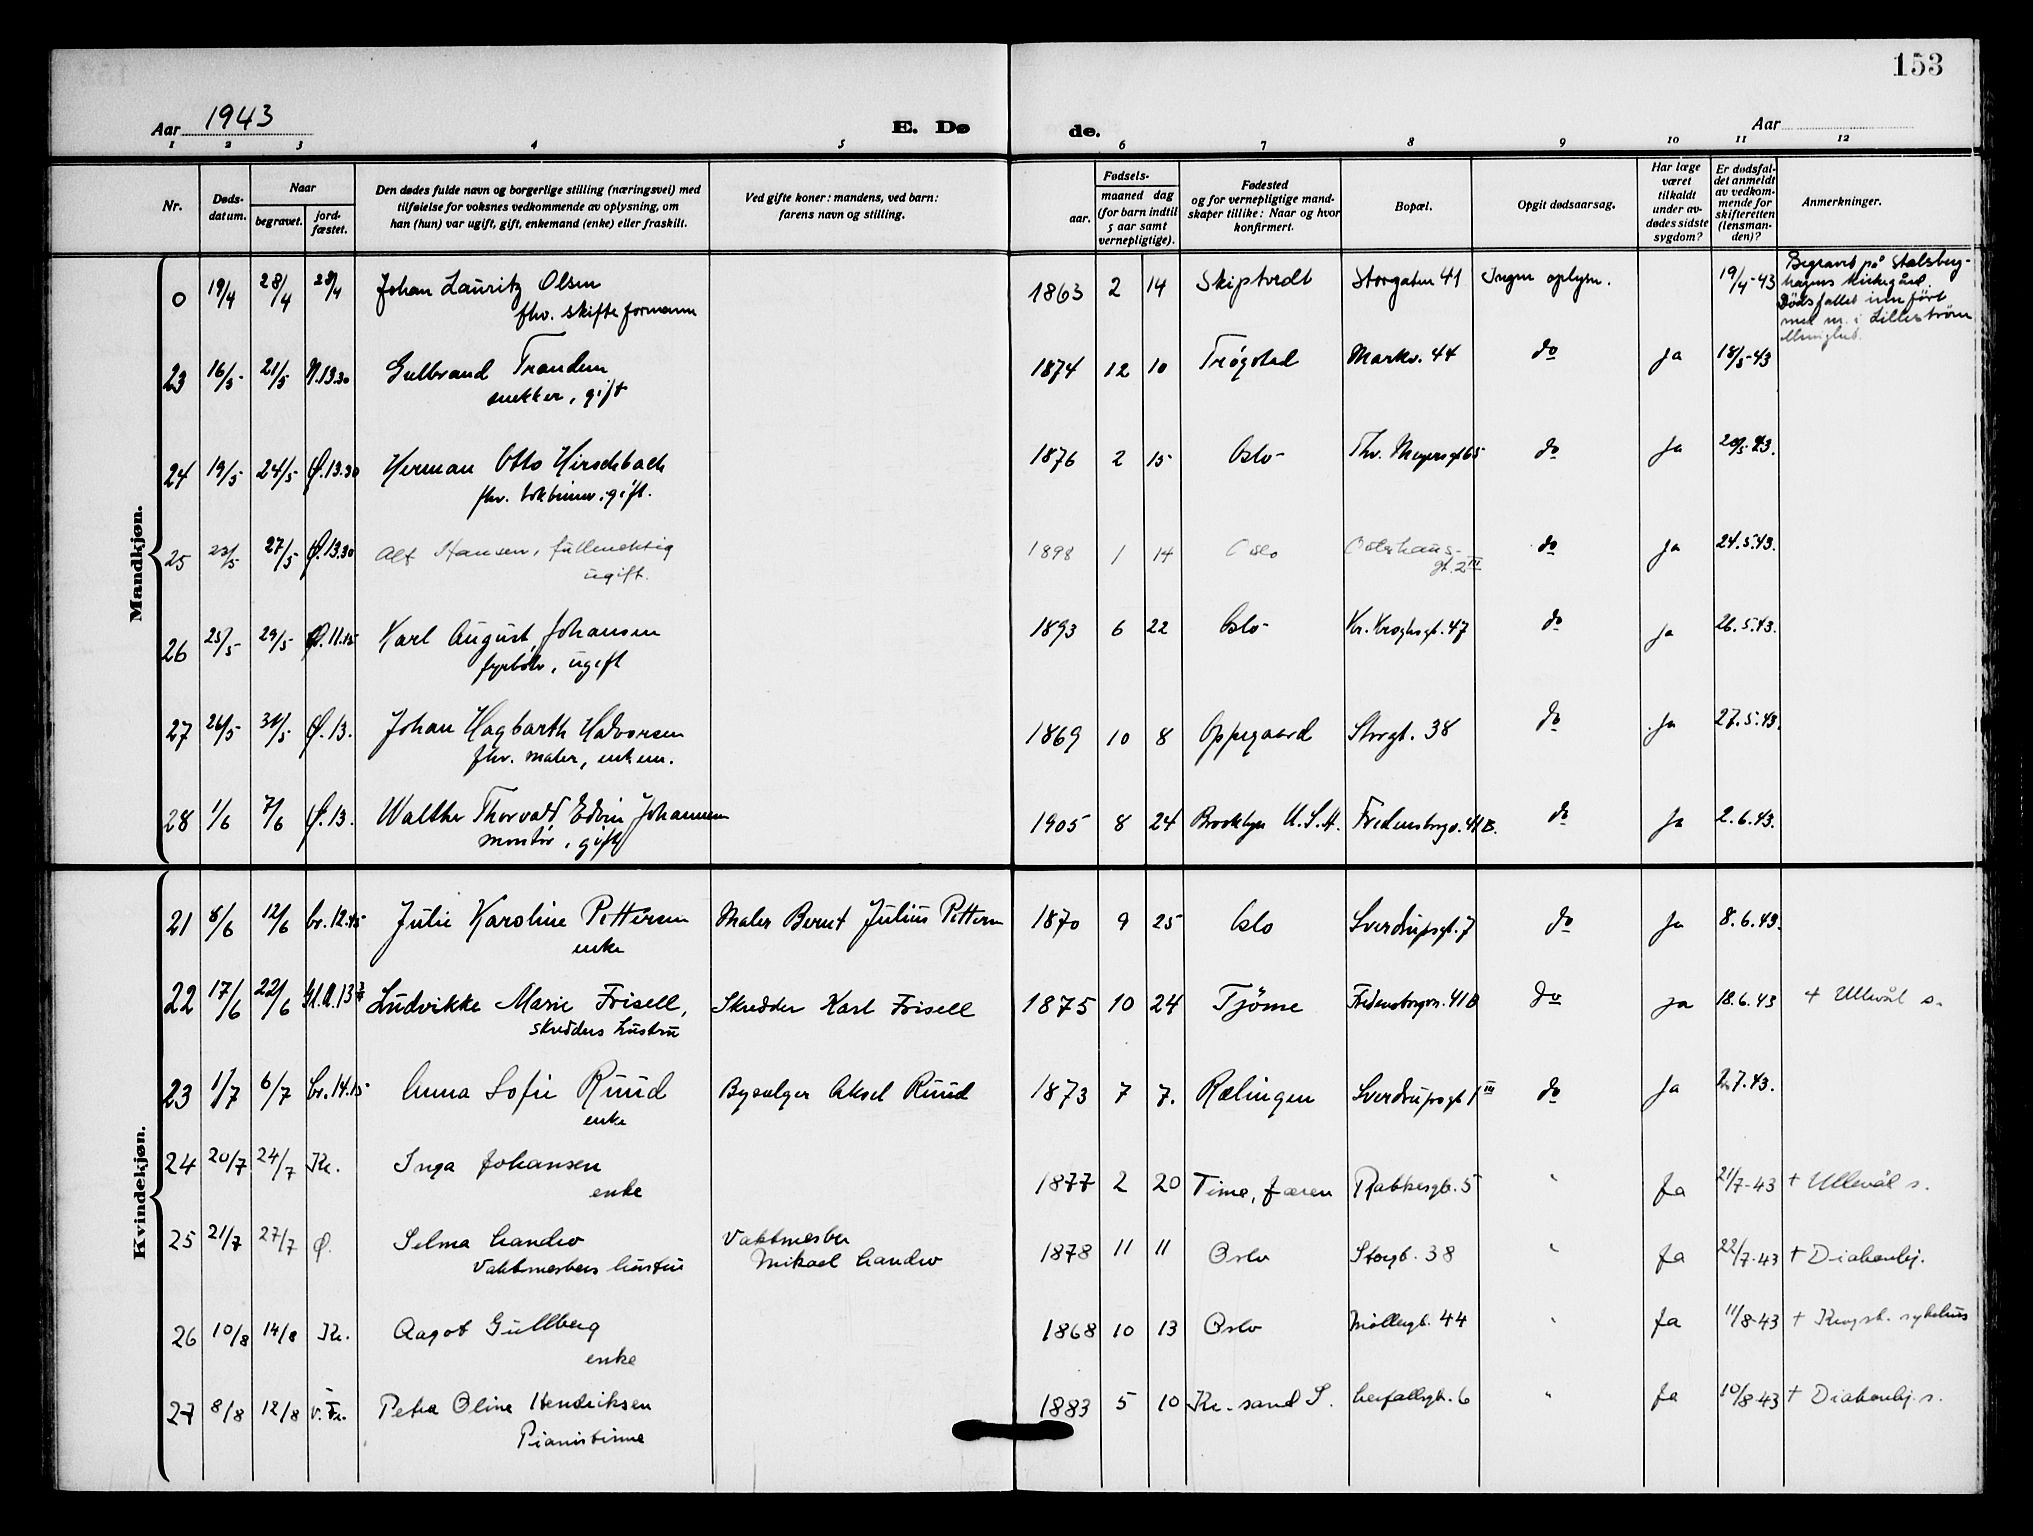 153
Aar 1943
E. Dø
de.
Aar
1 2 3 4 5 6 7 8 9 10 11 12
Nr.
Døds-
datum.
Naar
begravet.
jord-
fæstet.
Den dødes fulde navn og borgerlige stilling (næringsvei) med
tilføielse for voksnes vedkommende av oplysning, om
han (hun) var ugift, gift, enkemand (enke) eller fraskilt.
Ved gifte koner: mandens, ved barn:
farens navn og stilling.
Fødsels-
aar.
maaned dag
(for barn indtil
5 aar samt
vernepligtige).
Fødested
og for vernepligtige mand-
skaper tillike: Naar og hvor
konfirmert.
Bopæl.
Opgit dødsaarsag.
Har læge
været
tilkaldt
under av-
dødes sidste
sygdom?
Er dødsfal-
det anmeldt
av vedkom-
mende for
skifteretten
(lensman-
den)?
Anmerkninger.
Mandkjøn.
0 19/4 28/4 28/4 Johan Lauritz Olsen 1863 2 14 Skiptvedt Storgaten 41 Ingen oplysn. 19/4-43
fhv. skifteformann
Begravet på Stalsberg-
hagens kirkegård.
Dødsfallet innført
med nr. i Lillestrøm
23 16/5 21/5 N.13.30 Gulbrand Trandem 1874 12 10 Trøgstad Markv. 44 do Ja 18/5-43
snekker, gift
24 19/5 24/5 Ø.13.30 Herman Otto Hirschbach 1876 2 15 Oslo Thv. Meyersgt 65 do Ja 20/5-43.
fhv. bokbinder, gift.
25 22/5 27/5 Ø.13.30 Alf Hansen, fullmektig 1898 1 14 Oslo Osterhaus- do Ja 24.5.43.
ugift. gt. 2 III
26 25/5 29/5 Ø.11.15 Karl August Johansen 1893 6 22 Oslo Kr. Kroghsgt. 47 do Ja 26.5.43.
fyrbøter, ugift
27 26/5 31/5 Ø.13. Johan Hagbarth Halvorsen 1869 10 8 Oppegaard Storgt. 38 do Ja 27.5.43.
fhv. maler, enkem.
28 1/6 7/6 Ø.13. Walther Thorvald Edvin Johannesen 1905 8 24 Brooklyn U.S.A. Fredensborgv. 41 B. do Ja 2.6.43.
montør, gift
Kvindekjøn.
21 8/6 12/6 Cr.12.45 Julie Karoline Pettersen Maler Bernt Julius Pettersen 1870 9 25 Oslo Sverdrupsgt. 7 do Ja 8.6.43.
enke
22 17/6 22/6 Ludvikke Marie Frisell, Skredder Karl Frisell 1875 10 24 Tjöme Fredensborgvn. 41 B do Ja 18.6.43 + Ullevål s.
skredders hustru
23 1/7 6/7 Cr.14.15 Anna Sofie Ruud Byselger Aksel Ruud 1873 7 7. Rælingen Sverdrupsgt 1 III do Ja 2.7.43.
enke
24 20/7 24/7 Kr. Inga Johansen 1877 2 20 Time, Jæren Rathkesgt. 5 " Ja 21/7-43 + Ullevål s.
enke
25 21/7 27/7 Ø. Selma Landro Vaktmester 1878 11 11 Oslo Storgt. 38 " Ja 22/7-43 + Diakonhj.
Vaktmesters hustru Mikael Landro
26 10/8 14/8 Kr. Aagot Gullberg 1868 10 13 Oslo Møllergt. 44 " Ja 11/8-43 + Krogst. sykehus
enke
27 8/8 12/8 V. Fr. Petra Oline Hendriksen 1883 5 10 Kr.-sand S. Herfallsgt. 6 " Ja 10/8-43 + Diakonhj. s.
Pianistinne